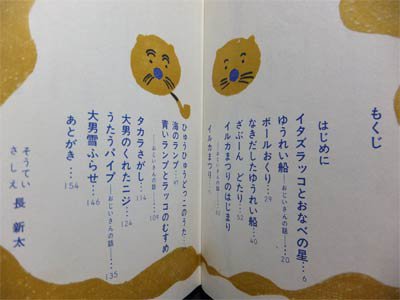 もくじ
はじめに
イタズラッコとおなべの星…6
ゆうれい船―おじいさんの話―…20
ボールおくり…29
なきだしたゆうれい船…40
ざぶーん どたり…52
イルカまつりのはじまり
―おじいさんの話…62
イルカまつり…
ひゅうひゅうどっこのうた…
海のランプ…
青いランプとラッコのむすめ
―おじいさんの話…109
タカラさがし…114
大男のくれたニジ…124
うたうパイプ―おじいさんの話…135
大男雪ふらせ…146
あとがき…154
そうてい
さしえ 長 新太